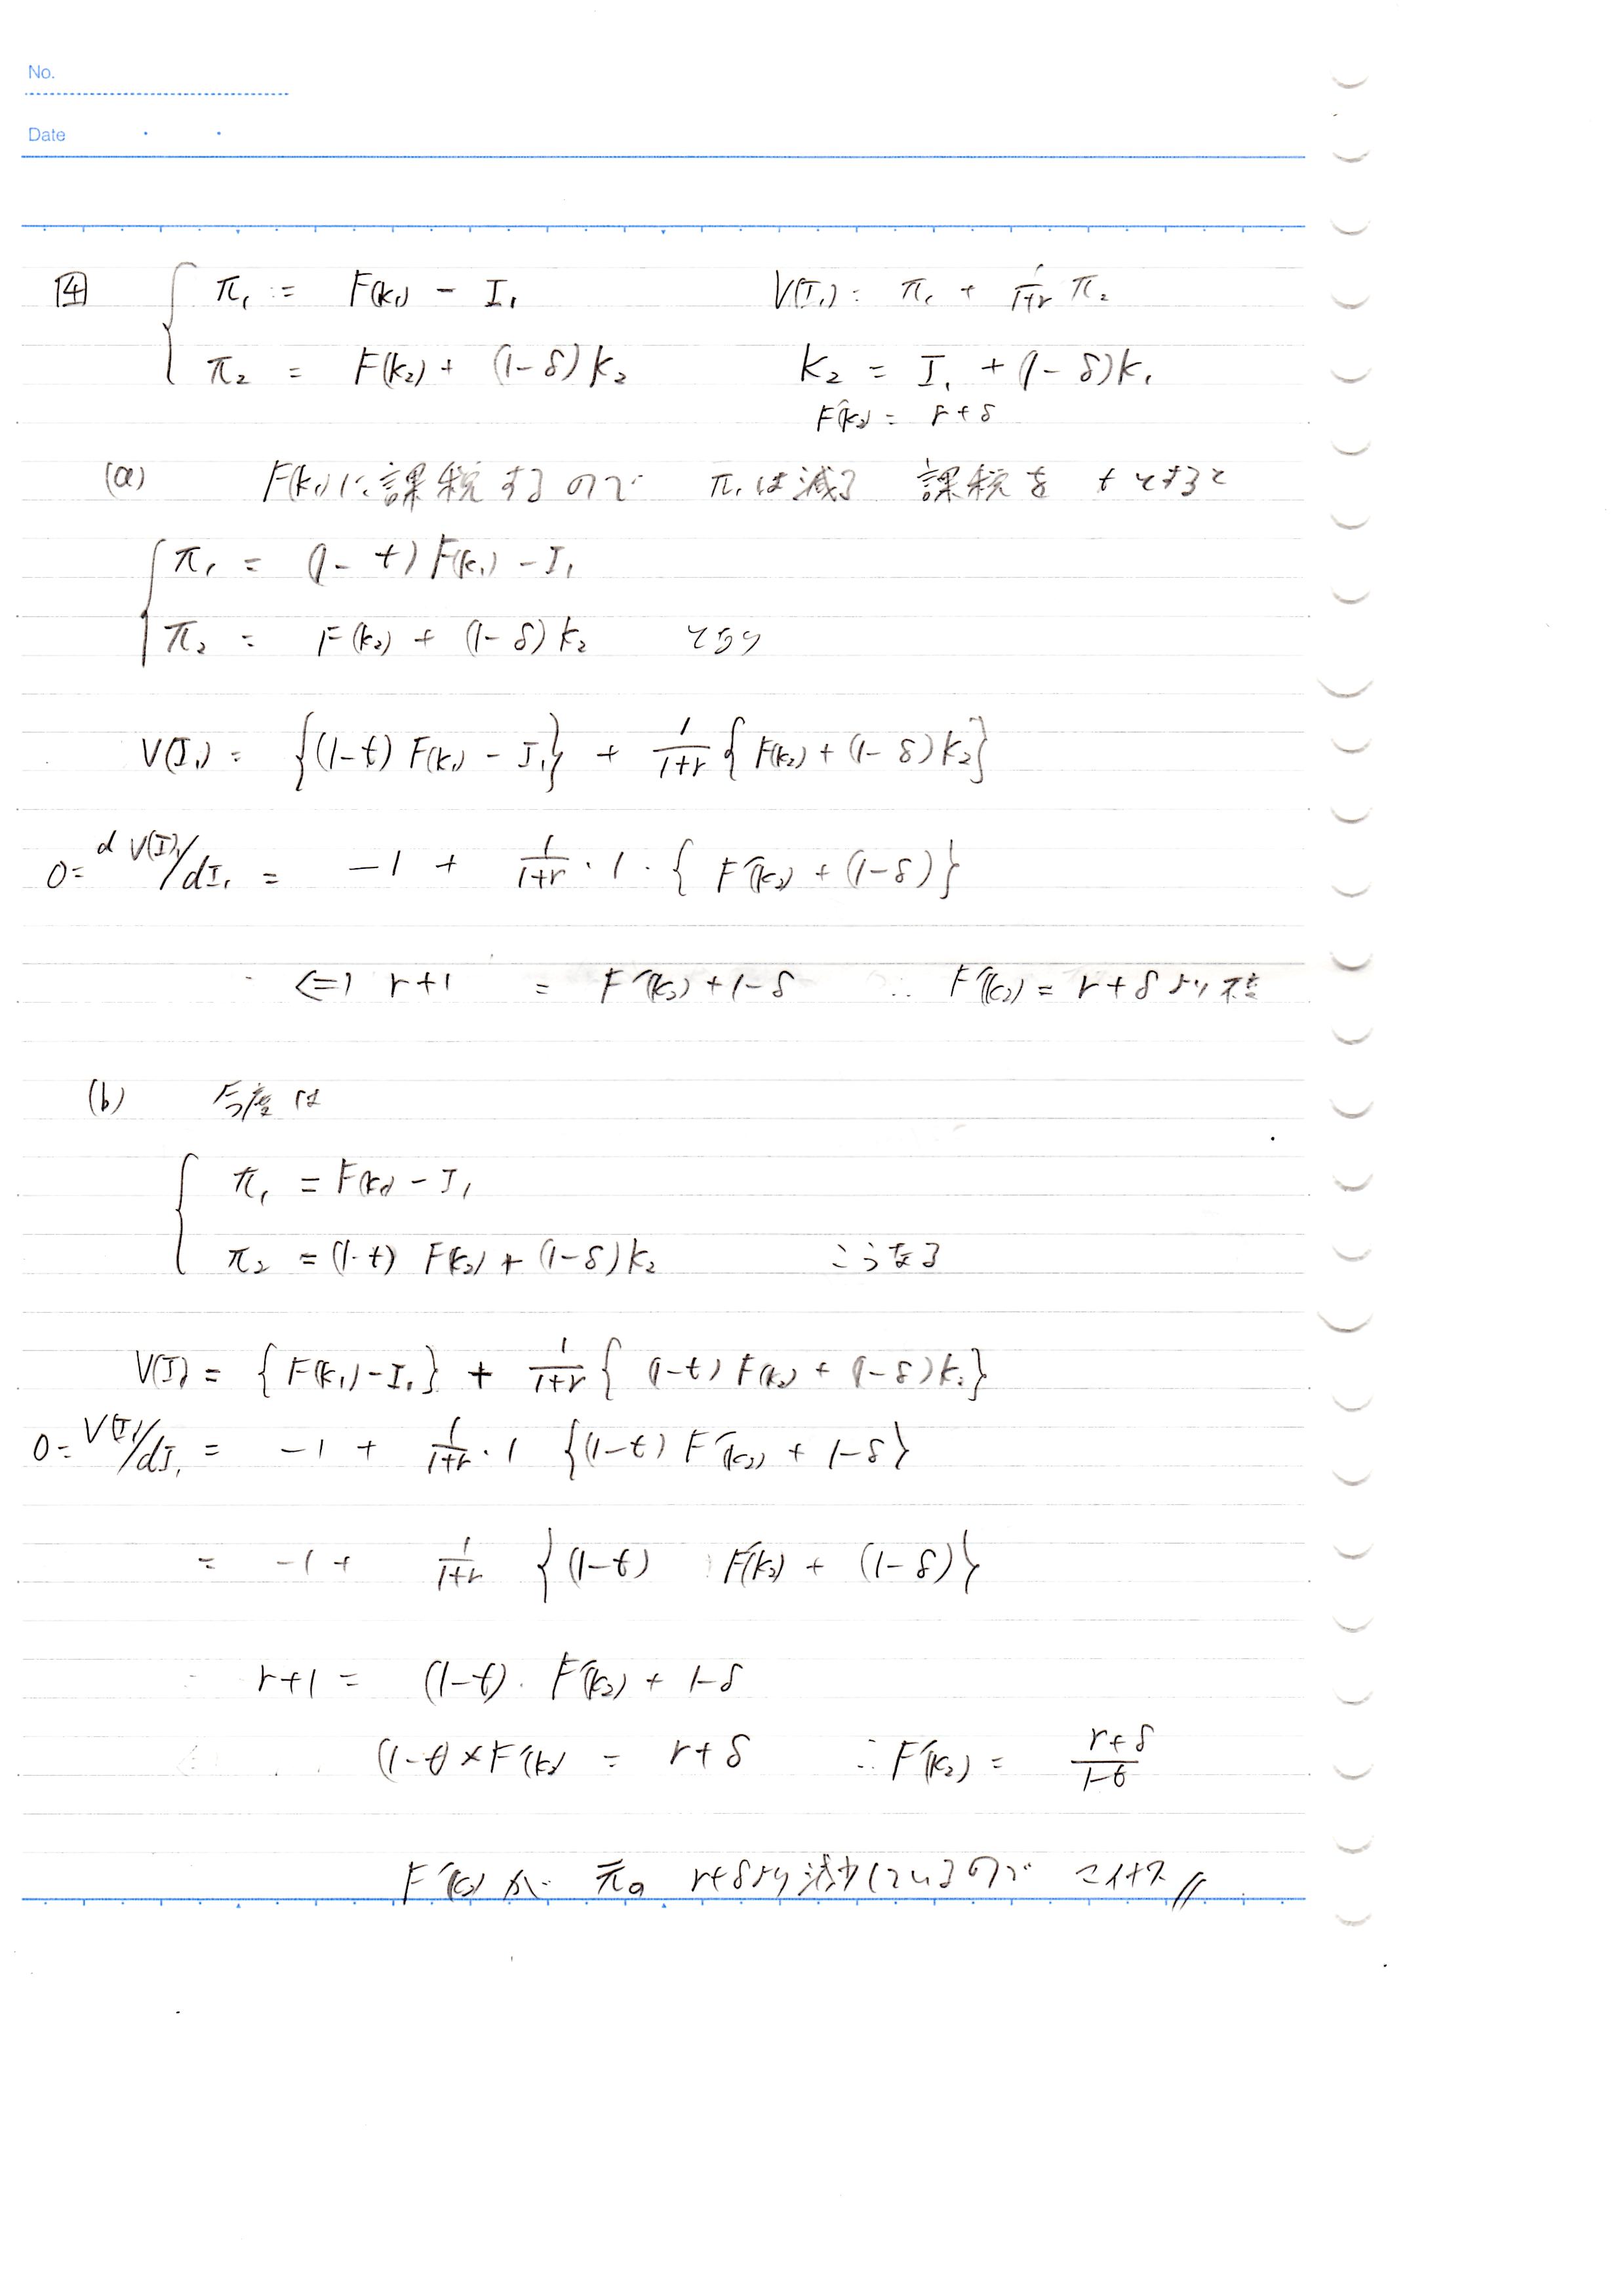 No.
Date
4 { π₁ = F(k₁) - I₁ V(I₁) = π₁ + 1/(1+r) π₂
π₂ = F(k₂) + (1-δ)k₂ k₂ = I₁ + (1-δ)k₁
F'(k₂) = r+δ
(a) F(k₁)に課税するので π₁は減る 課税を tとすると
{ π₁ = (1-t)F(k₁) - I₁
π₂ = F(k₂) + (1-δ)k₂ となり
V(I₁) = {(1-t)F(k₁) - I₁} + 1/(1+r) {F(k₂) + (1-δ)k₂}
0 = dV(I₁)/dI₁ = -1 + 1/(1+r) · 1 · {F'(k₂) + (1-δ)}
⇔ r+1 = F'(k₂) + 1-δ ∴ F'(k₂) = r+δより
(b) 今度は
{ π₁ = F(k₁) - I₁
π₂ = (1-t) F(k₂) + (1-δ)k₂ こうなる
V(I₁) = {F(k₁) - I₁} + 1/(1+r) {(1-t)F(k₂) + (1-δ)k₂}
0 = V(I₁)/dI₁ = -1 + 1/(1+r) · 1 {(1-t)F'(k₂) + 1-δ}
= -1 + 1/(1+r) {(1-t) F'(k₂) + (1-δ)}
r+1 = (1-t) · F'(k₂) + 1-δ
(1-t)×F'(k₂) = r+δ ∴ F'(k₂) = (r+δ)/(1-t)
F'(k₂)が 元の r+δより減少しているので